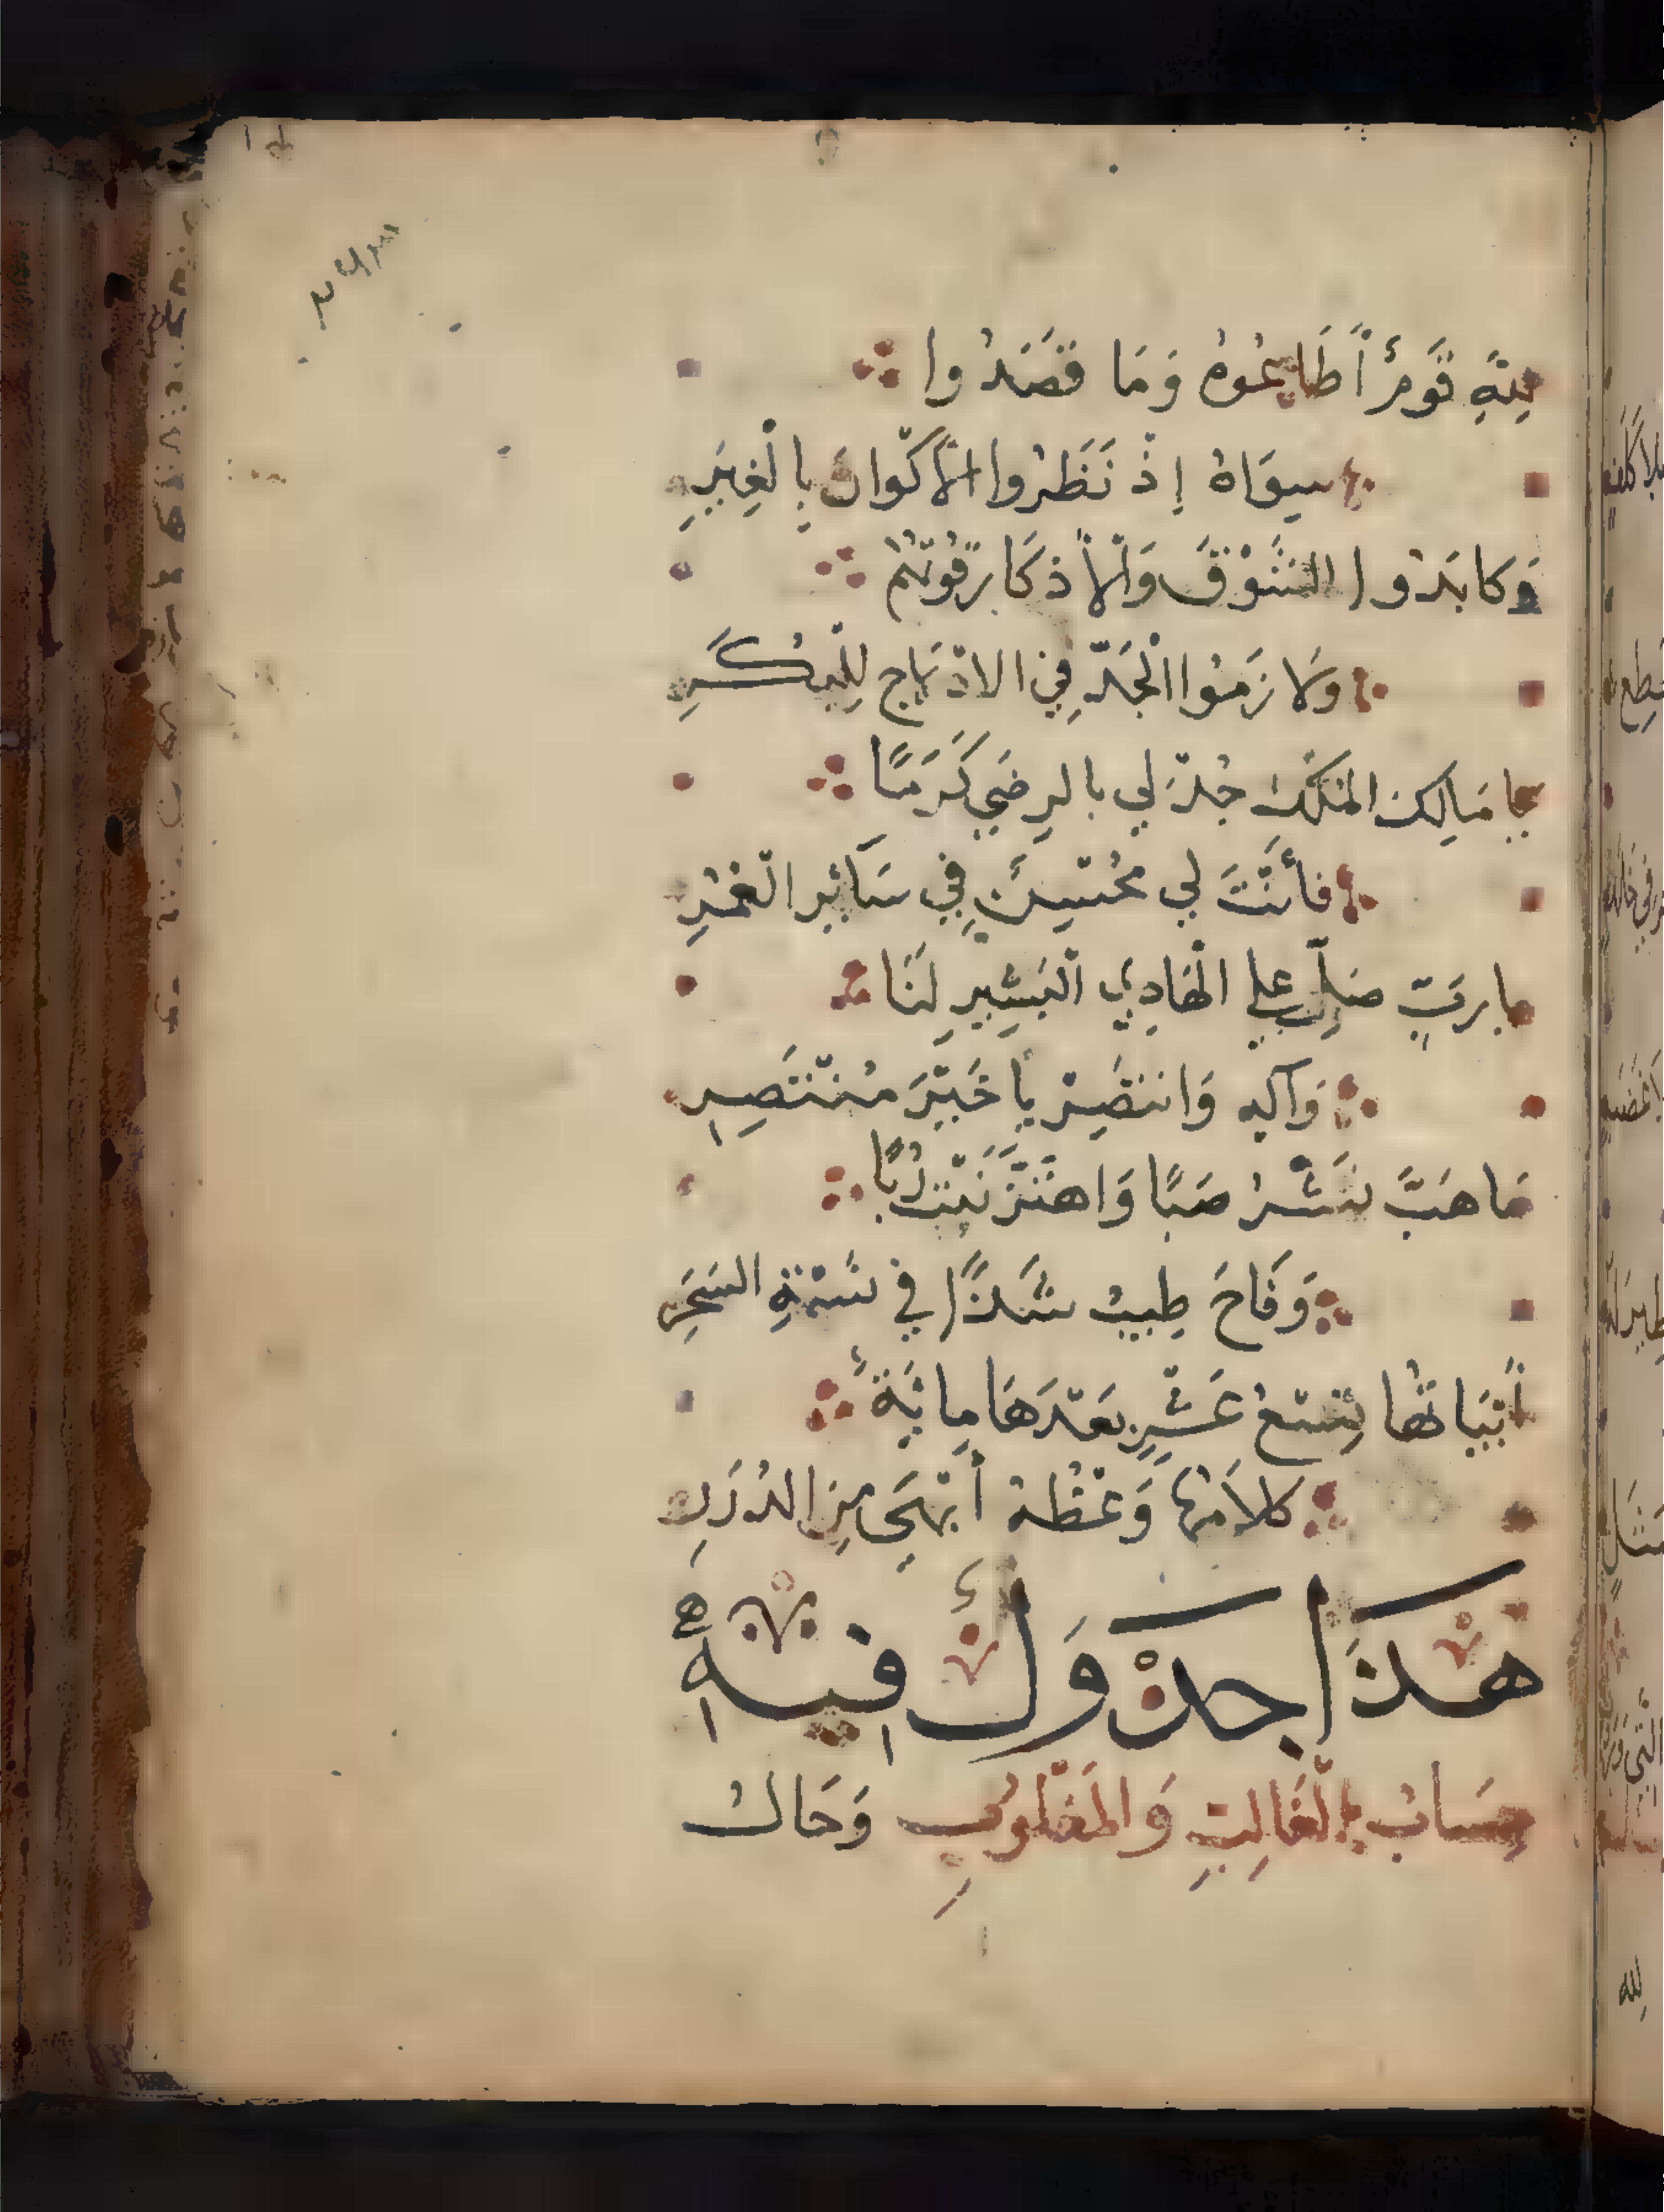 ٢٦٣
لِلّهِ قَومٌ أَطَاعُوهُ وَمَا قَصَدُوا
سِوَاهُ إِذْ نَظَرُوا الْأَكْوَانَ بِالْغِيَرِ
وَكَابَدُوا الشَّوْقَ وَالْأَذكَارُ قُوتُهُمْ
وَلَازَمُوا الْجَدَّ فِي الادْلَاجِ لِلْبُكَرِ
يا مَالِكَ المُلْكِ جُدْ لِي بالرِضَي كَرَمًا
فأَنْتَ لِي مُحْسِنٌ فِي سَائِرِ الْعُمْرِ
يا رَبِّ صَلِّ علي الْهَادِي الْبَشِيرِ لَنَا
وَآلِهِ وَانتَصِرْ يا خَيْرَ مُنْتَصِرِ
مَا هَبَّ نَشْرُ صَبًا وَاهْتَزَّ نَبْتُ رُبًا
وَفَاحَ طِيبُ شَذًا في نَسْمَةِ السَحَرِ
أَبْيَاتُهَا تِسْعُ عَشْرٍ بَعْدَهَا مِائَةٌ
كَلَامُهَا وَعْظُهُ أَبْهَى مِنَ الدُرَرِ
هَذَا جَدْوَلٌ فِيهِ
حِسَابُ الْغَالِبِ وَالْمَغْلُوبِ وَحَالُ
لله